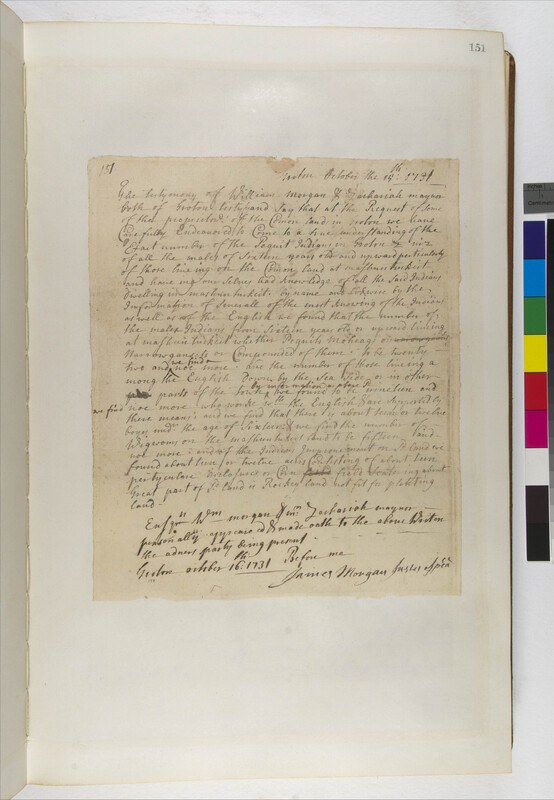 151
151
Groton October the 14th 1731
The testymony off William Morgan & Zachariah maynor
both of Groton testy and Say that at the Request of Some
of the propriators off the Comon land in Groton we have
Carefully Endeavored to Come to a true understanding of the
Exact number of the Pequit Indians in Groton & viz
of all the males of Sixteen years old and upward particularly
of those liveing on the Comon land at mashuntucksit
and haveing our Selves had knowledge of all the Said Indians
Dwelling in mashuntuckset by name and Likewise by the
Information of Severall of the most knowing of the Indians
as well as of the English we found that the number of
the males Indians from Sixteen years old or upward liveing
at mashuntuckset whether Pequits Moheags or
Narowgansets or Compounded of them to be twenty
two and not more
we find
and the number of those liveing a
mong the English Down by the Sea Side or in other
parts of the town
by information a bove sd
we found to be nineteen and
we find
not more who work with the English & are Supported by
these means and we find that there is about ten or twelve
boyes undr the age of Sixteen & we find the number of
Wigwoms on the mashuntuckset land to be fifteen
not more and of the Indian Improvement on Sd land we
found about ten or twelve acres Consisting of about
perticulare Inclosures or Corn
Great part of Sd land is Rockey land not fit for planting
land
Ensgn Wm morgan & mr Zachariah maynor
personally appeared & made oath to the above Writen
the advers party being present
Groton october 16th 1731 Before me
James Morgan Justes of peace